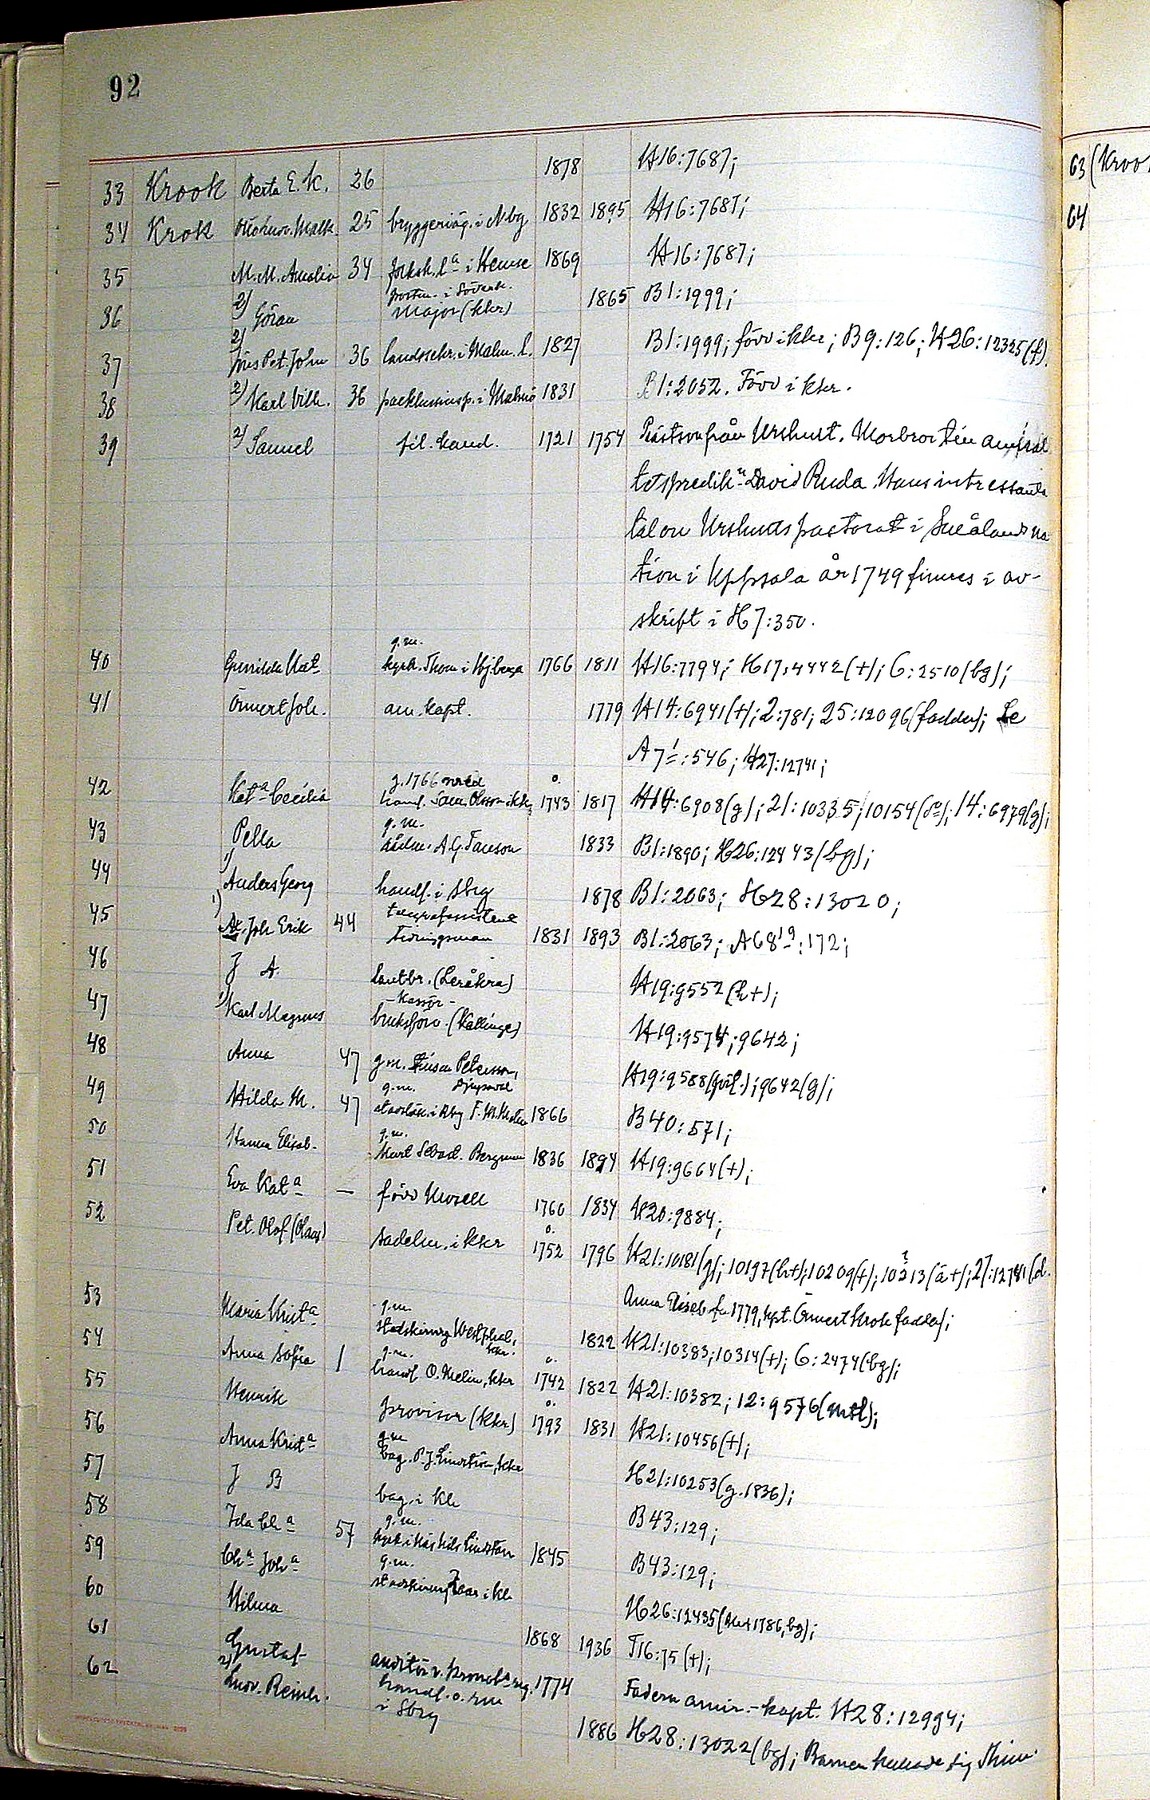 92
33 Krook Berta E. K. 26 1878 H16:7687;
34 Krok 25 bryggeriäg. i Nbg 1832 1895 H16:7687;
35 M. M. Amalia 34 folksk. l:a i Hemse 1869 H16:7687;
36 2) Göran Major (kkr) 1865 B1:1999;
37 2) Pet. John 36 landssekr. i Malm. l. 1827 B1:1999; förv i kkr; B9:126; H26:12325(f).
38 2) Karl Vilh. 36 packhusinsp. i Malmö 1831 B1:2052. Förv i kkr.
39 2) Samuel fil. kand. 1721 1754 Prästson från Urshult. Morbror till amiral
tetspredik:n David Ruda. Hans intressanta
tal om Urshults pastorat i Smålands na
tion i Uppsala år 1749 finnes i av-
skrift i H7:350.
g.m.
40 Gunilda Kat:a kyrk. Thom i Hjberga 1766 1811 H16:7794; H17:4442(+); 6:2510(bg);
41 Önnert Joh. am. kapt. 1779 H14:6941(+); 2:781; 25:12096(fadder); Se
A7:546; H27:12741;
g. 1766 med
42 Kat:a Cecilia handl. Olsson i kkr 1743 1817 H14:6908(g); 21:10335; 10154; 14:6979(g);
g.m.
43 Pella rådm. A. G. 1833 B1:1890; H26:12443(bg);
44 1) Anders Georg handl. i Sbg 1878 B1:2063; H28:13020;
telegrafassistent
45 1) Joh Erik 44 tidningsman 1831 1893 B1:2063; A68:172;
46 J A. lantbr. (Leråkra) H19:9552(h+);
- kassör -
47 1) Karl Magnus bruksförv. (Kallinge) H19:9574; 9642;
48 Anna 47 g.m. Petersson, Djupadal H19:9588; 9642(g);
g.m.
49 Hilda M. 47 1866 B40:571;
g.m.
50 Hanna Elisab. Sebast. Bergman 1836 1894 H19:9664(+);
51 Eva Kat:a — född Mozell 1760 1834 H20:9884;
52 Pet. Olof (Olaus) sadelm. i kkr 1752 1796 H21:10181(g); 10197(h+); 10209(+); 10213(ä+); 27:12781(d.
Anna Elisab f. 1779, kpt. Önnert Krok fadder);
g.m.
53 Maria Krist:a stadskirurg Westphal, kkr. 1822 H21:10383; 10314(+); 6:2474(bg);
g.m.
54 Anna Sofia 1 handl. O. Melin, kkr 1742 1822 H21:10382; 12:9576(mtl);
55 Henrik provisor (kkr) 1793 1831 H21:10456(+);
g.m.
56 Anna Krist:a bag. P. J. Lindström, kkr H21:10253(g. 1836);
57 J B bag. i kkr B43:129;
g.m.
58 Ida Ch:a 57 1845 B43:129;
g.m.
59 Ch:a Joh:a stadskirurg i kkr H26:12435
60 Hilma 1868 1936 T16:75(+);
61 Gustaf auditör v. 1774 Fadern amir.-kapt. H28:12994;
62 2) Ludv. Reinh. handl. o. rm
i Sbg 1886 H28:13022(bg); Barnen kallade sig
63 (Kroo
64